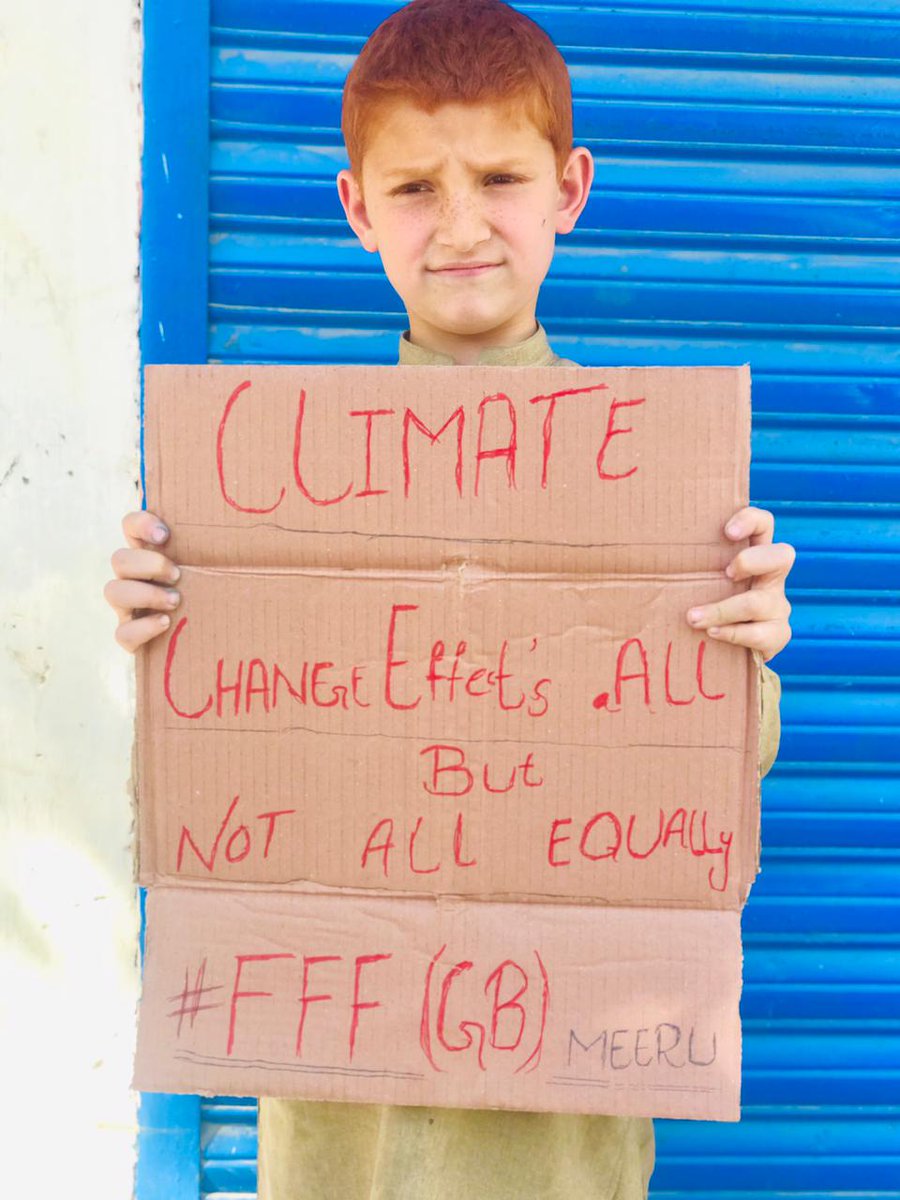 CLIMATE
CHANGE Effect's .ALL
But
NOT ALL EQUALLy
#FFF (GB) MEERU